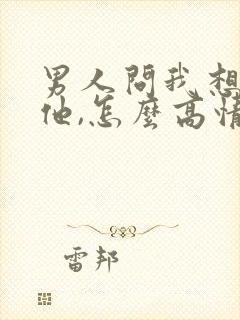 男人問我想
他,怎麼高情
雷邦